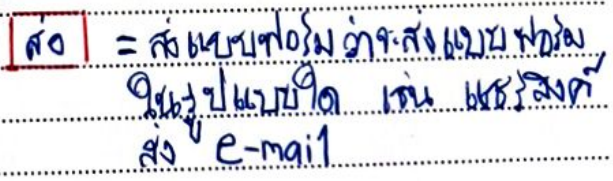 ส่ง = ส่งแบบฟอร์ม ว่าจะส่งแบบฟอร์ม
ในรูปแบบใด เช่น แชร์ลิงค์
ส่ง e-mail